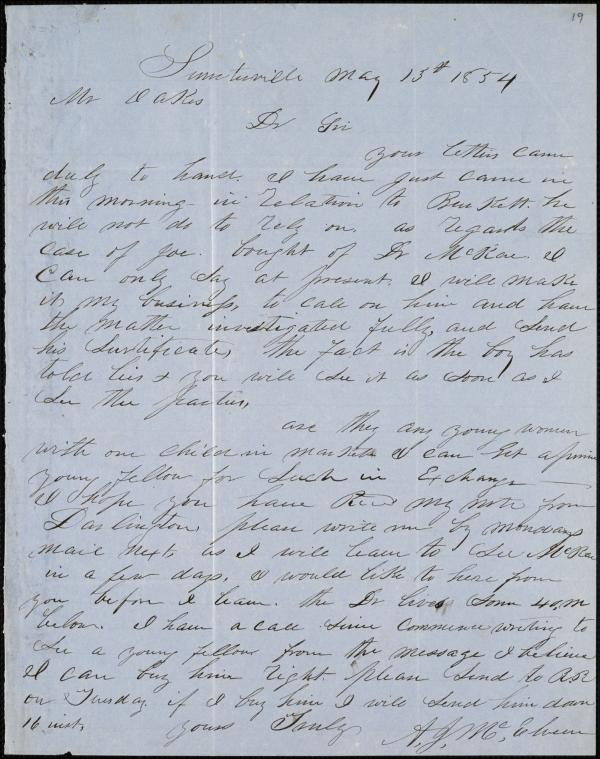 19
Sumterville May 13th 1854
Mr Oakes
Dr Sir
your letter came
duly to hand. I have just came in
this morning in relation to Benkett. he
will not do to rely on. as regards the
case of Joe. bought of Dr McKae. I
can only say at present. I will make
it my business to call on him and have
the matter investigated fully and send
his Surtificate, the fact is the boy has
told lies & you will see it as soon as I
see the parties,
are they any young women
with one child in market I can get a prime
young fellow for such in Exchange —
I hope you have Recd my note from
Darlington please write me by mondays
mail next as I will leave to see McKae
in a few days. I would like to here from
you before I leave. the Dr lives some 40 m
below. I have a call since commence writing to
see a young fellow from the message I believe
I can buy him right please send to R.R
on Tuesday if I buy him I will send him down
16 inst, yours Truly A. J. McElveen